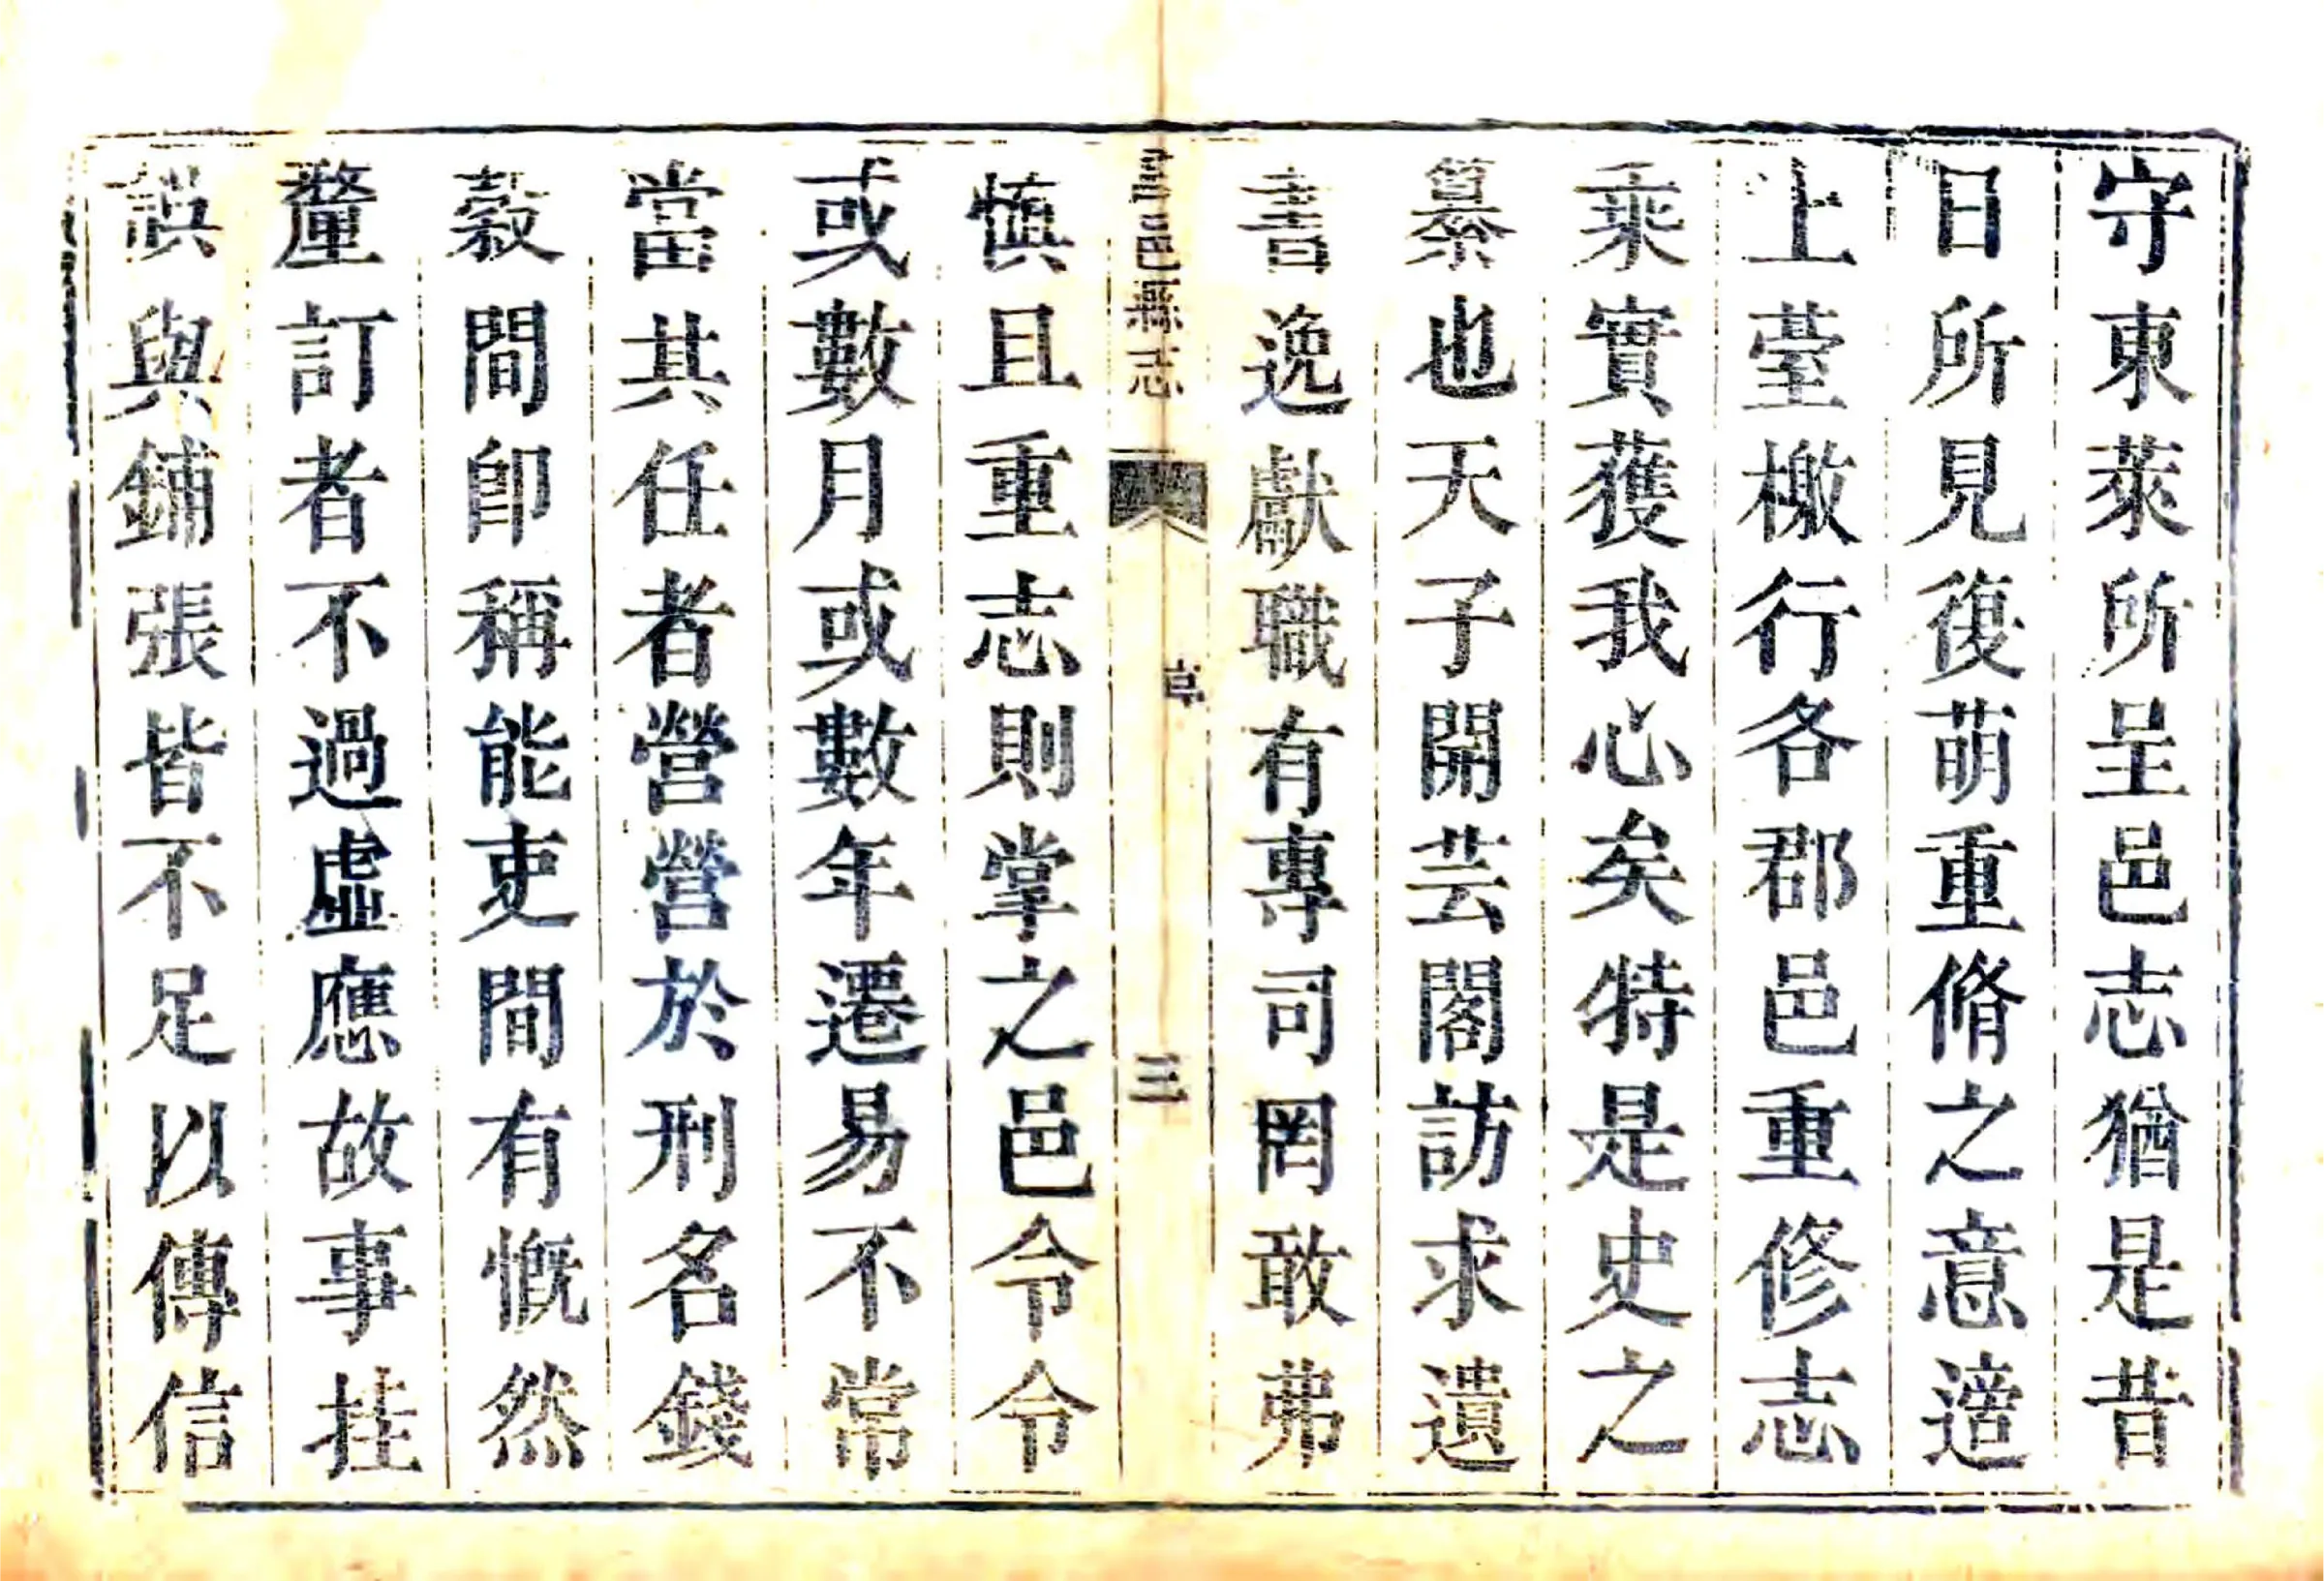 守東萊所呈邑志猶是昔
日所見復萌重脩之意適
上臺檄行各郡邑重修志
乘實獲我心矣特是史之
纂也天子開芸閣訪求遺
書逸獻職有專司罔敢弗
昌邑縣志
三
慎且重志則掌之邑令令
或數月或數年遷易不常
當其任者營營於刑名錢
穀間卽稱能吏間有慨然
釐訂者不過虛應故事挂
誤與鋪張皆不足以傳信